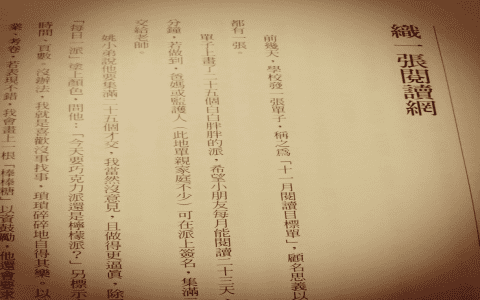 織一張閱讀網
前幾天，學校發一張單子，稱之為「十一月閱讀目標單」，顧名思義以
都有一張。
單子上畫了二十五個白白胖胖的派，希望小朋友每月能閱讀二十三天，
分鐘，若做到，爸媽或監護人（此地單親家庭不少）可在派上簽名，集滿
交給老師。
姚小弟說他要集滿二十五個才交，我當然沒意見，且做得更逼真，除
「每日一派」塗上顏色，問他：「今天要巧克力派還是檸檬派？」另標示
時間、頁數。沒辦法，我就是喜歡沒事找事，瑣瑣碎碎地自得其樂。以
業、考卷，若表現不錯，我會畫上一根「棒棒糖」以資鼓勵，他還會要求